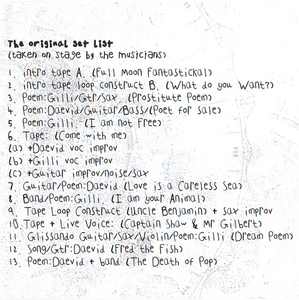 The original set list
(taken on stage by the musicians)
1. intro tape A. (Full Moon Fantastickal)
2. intro tape loop construct B. (What do you Want?)
3. Poem:Gilli/Gtr/sax. (Prostitute Poem)
4. Poem:Daevid/Guitar/Bass/(Poet for sale)
5. Poem:Gilli. (I am not Free)
6. Tape: (Come with me)
(a) +Daevid voc improv
(b) +Gilli voc improv
(c) +Guitar improv/noise/sax
7. Guitar/Poem:Daevid (Love is a Careless Sea)
8. Band/Poem:Gilli. (I am your Animal)
9. Tape Loop Construct (Uncle Benjamin) + sax improv
10. Tape + Live Voice: (Captain Shaw & Mr Gilbert)
11. Glissando Guitar/Sax/Violin/Poem:Gilli (Dream Poem)
12. Song/Gtr:Daevid (Fred the Fish)
13. Poem:Daevid + band (The Death of Pop)